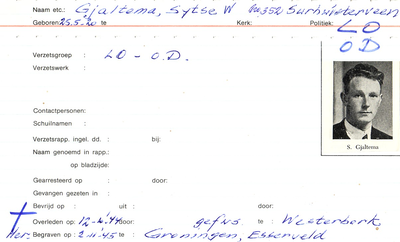 Naam etc.: Gjaltema, Sytse W Surhuisterveen
Geboren: 25.5.20 Kerk: Politiek: LO
OD
Verzetsgroep : LO - O.D.
Verzetswerk :
Contactpersonen:
Schuilnamen :
Verzetsrapp. ingel. dd. : bij:
Naam genoemd in rapp.:
op bladzijde:
S. Gjaltema
Gearresteerd op : door:
Gevangen gezeten in :
Bevrijd op : uit : door:
Overleden op : 12-4-44 door: gefus. te : Westerbork
Her. Begraven op : 2-11-45 te : Groningen, Esserveld